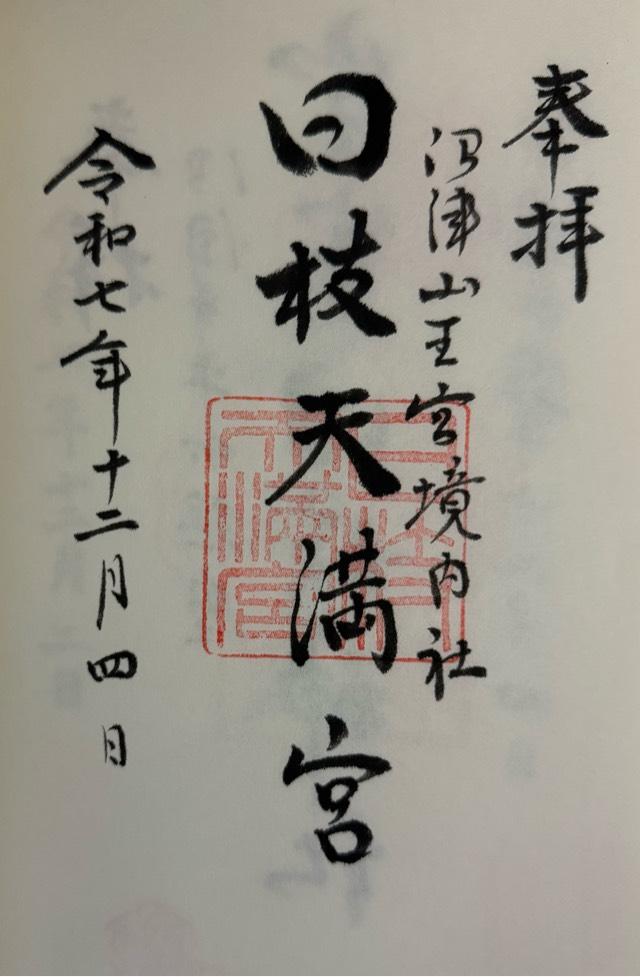 奉拝
沼津山王宮境内社
日枝天満宮
令和七年十二月四日